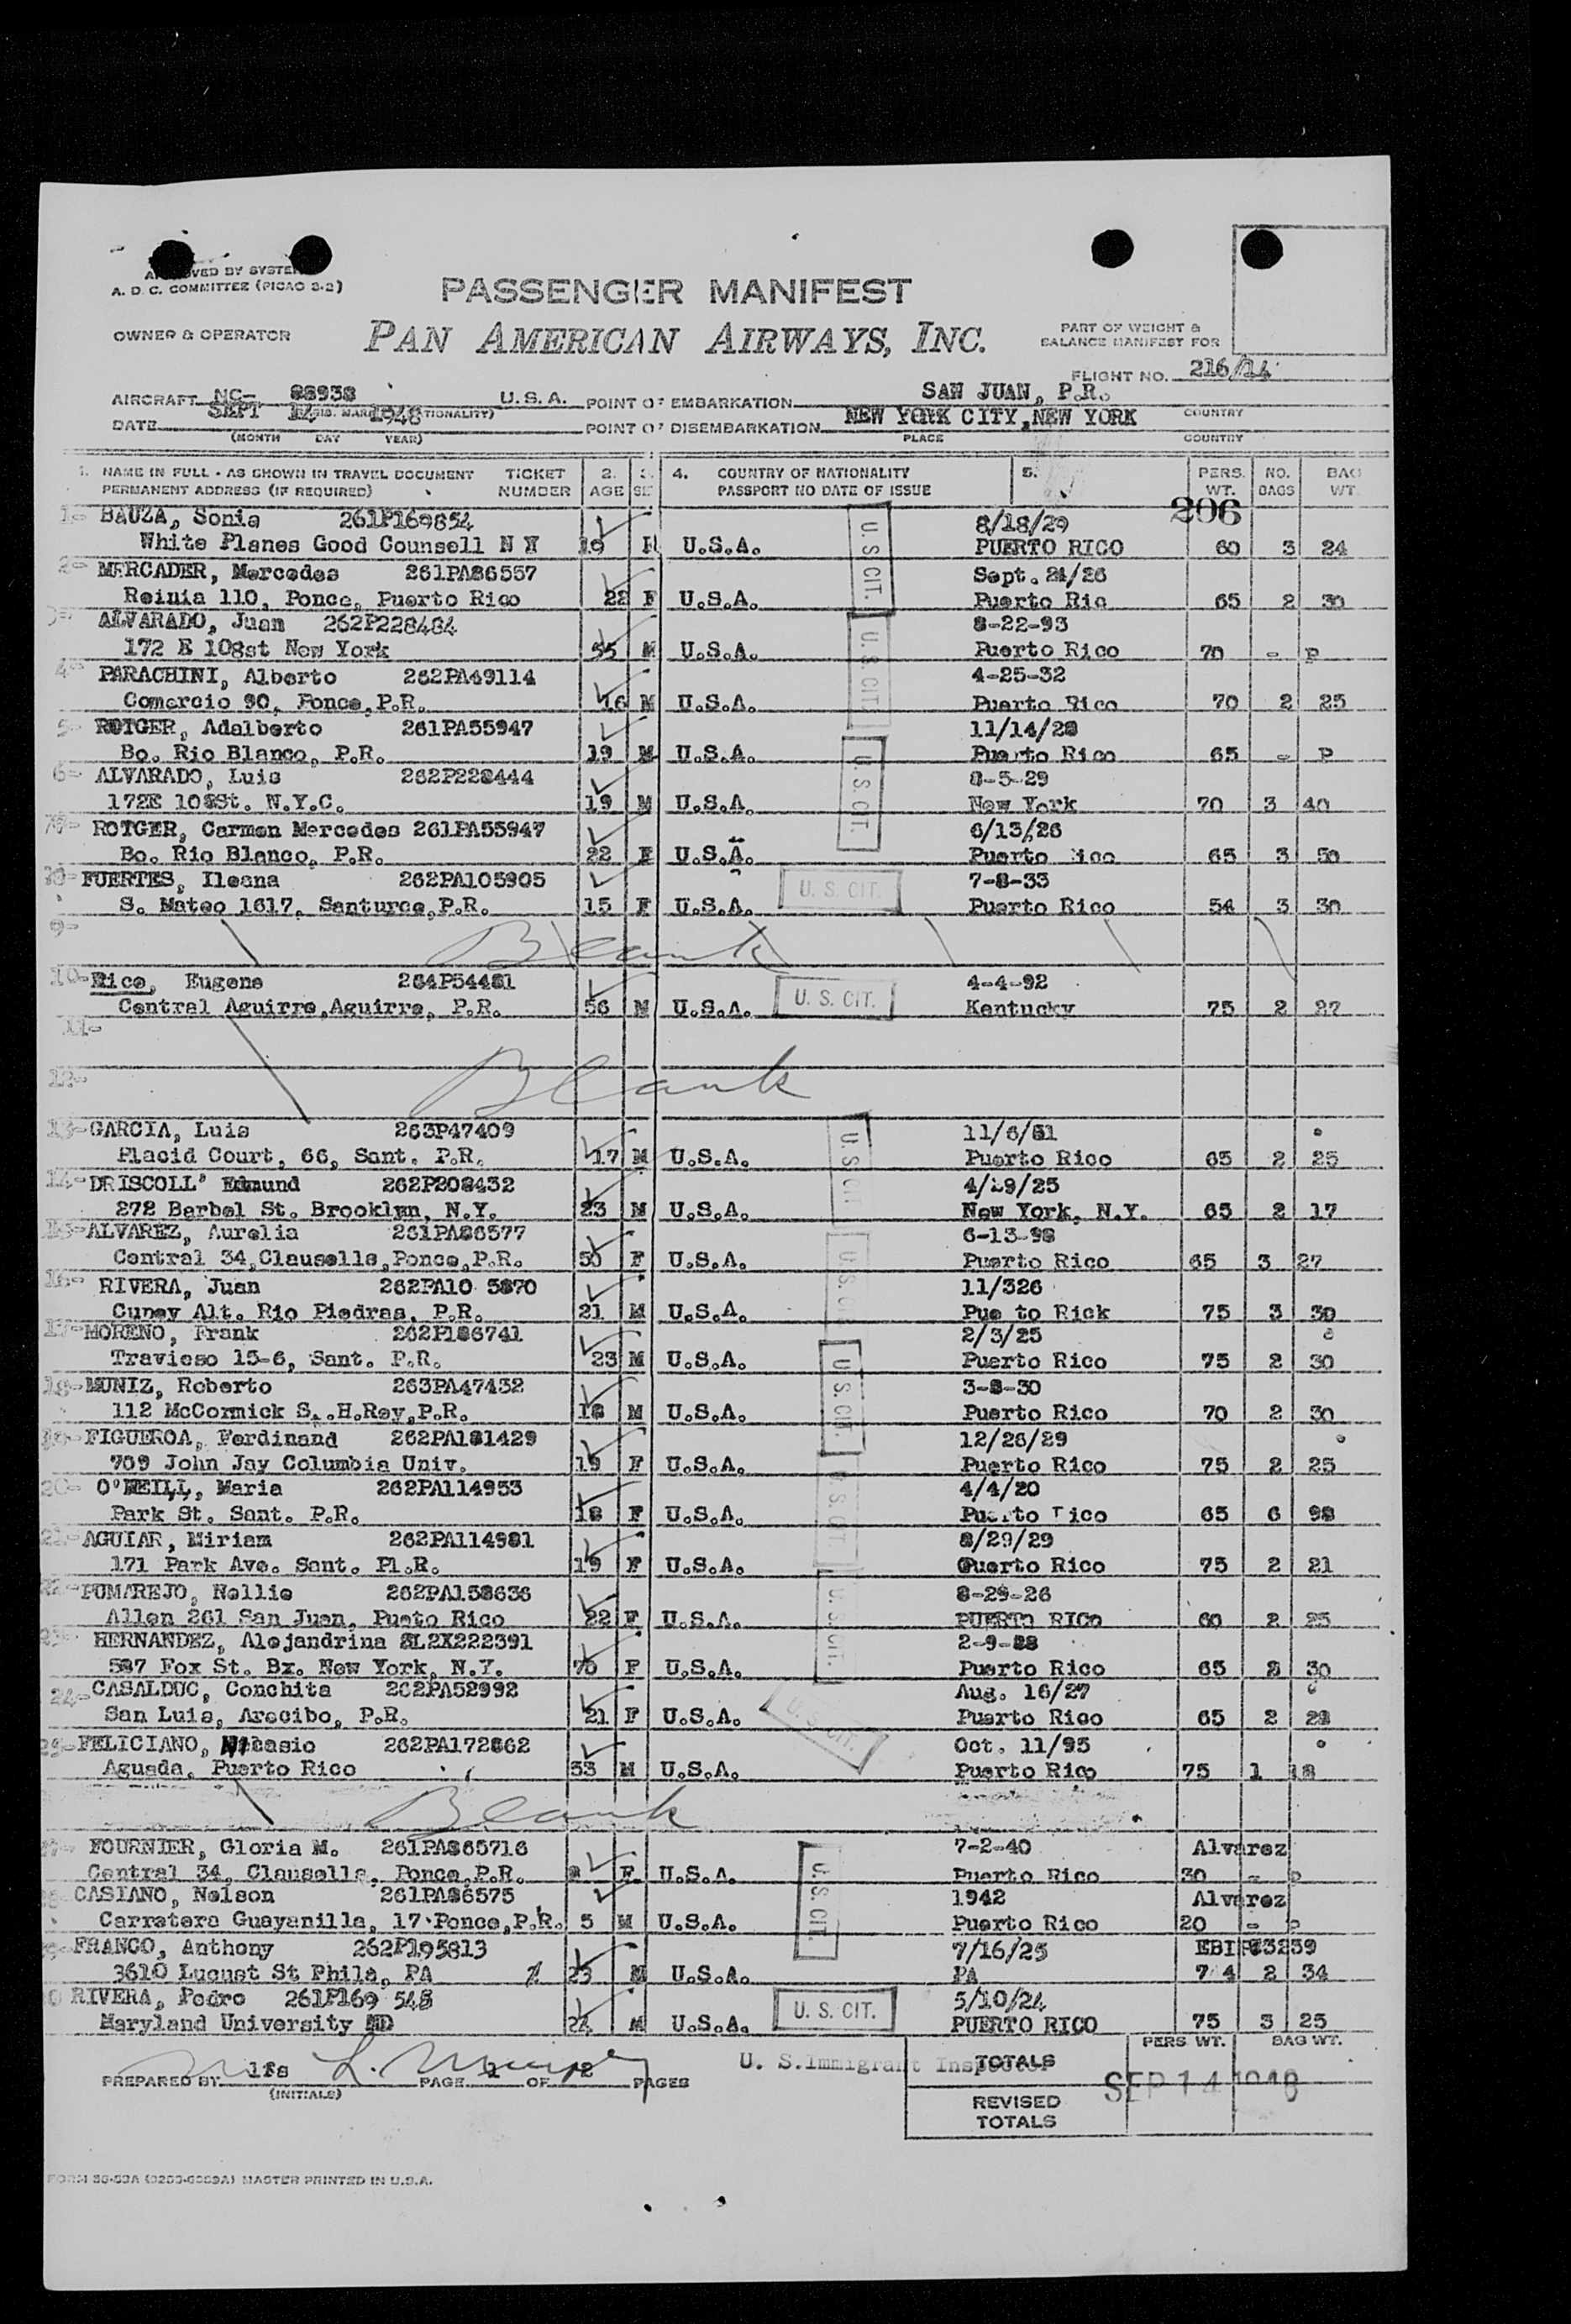 APPROVED BY SYSTEM
A. D. C. COMMITTEE (PICAO 2-2)
PASSENGER MANIFEST
OWNER & OPERATOR
PAN AMERICAN AIRWAYS, INC.
PART OF WEIGHT &
BALANCE MANIFEST FOR
FLIGHT NO. 216/14
AIRCRAFT NC- 88938 U.S.A. POINT OF EMBARKATION SAN JUAN, P.R.
DATE SEPT 14 1948 POINT OF DISEMBARKATION NEW YORK CITY, NEW YORK COUNTRY
(MONTH DAY YEAR) PLACE COUNTRY
1. NAME IN FULL - AS SHOWN IN TRAVEL DOCUMENT TICKET 2. 3. 4. COUNTRY OF NATIONALITY 5. PERS. NO. BAG
PERMANENT ADDRESS (IF REQUIRED) NUMBER AGE SEX PASSPORT NO DATE OF ISSUE WT. BAGS WT.
206
1- BAUZA, Sonia 261P169854 8/18/29
White Planes Good Counsell N Y 19 U.S.A. PUERTO RICO 60 3 24
U.S CIT.
2- MERCADER, Mercedes 261PA86557 Sept. 24/26
Reinia 110, Ponce, Puerto Rico 22 F U.S.A. Puerto Ric 65 2 30
3- ALVARADO, Juan 262P228484 8-22-93
172 E 108st New York 55 M U.S.A. Puerto Rico 70 - P
U.S. CIT.
4- PARACHINI, Alberto 262PA69114 4-25-32
Comercio 90, Ponce, P.R. 16 M U.S.A. Puerto Rico 70 2 25
5- ROTGER, Adalberto 261PA55947 11/14/28
Bo. Rio Blanco, P.R. 19 M U.S.A. Puerto Rico 65 - P
U.S. CIT.
6- ALVARADO, Luis 262P228444 8-5-29
172E 108St. N.Y.C. 19 M U.S.A. New York 70 3 40
7- ROTGER, Carmen Mercedes 261PA55947 6/13/26
Bo. Rio Blanco, P.R. 22 F U.S.A. Puerto Rico 65 3 50
8- FUERTES, Ileana 262PA105905 7-8-33
S. Mateo 1617, Santurce, P.R. 15 F U.S.A. U. S. CIT. Puerto Rico 54 3 30
9- Blank
10- Rice, Eugene 264P54481 4-4-92
Central Aguirre, Aguirre, P.R. 56 M U.S.A. U. S. CIT. Kentucky 75 2 27
11-
12- Blank
13- GARCIA, Luis 263P47409 11/6/31
Placid Court, 66, Sant. P.R. 17 M U.S.A. Puerto Rico 65 2 25
U.S CIT
14- DRISCOLL' Edmund 262P208432 4/29/25
272 Barbel St. Brooklyn, N.Y. 23 M U.S.A. New York, N.Y. 65 2 17
15- ALVAREZ, Aurelia 261PA86577 6-13-98
Central 34, Clausells, Ponce, P.R. 50 F U.S.A. Puerto Rico 65 3 27
U.S. CIT
16- RIVERA, Juan 262PA10 5870 11/326
Cupey Alt. Rio Piedras, P.R. 21 M U.S.A. Pue to Rick 75 3 30
17- MORENO, Frank 262P186741 2/3/25
Travieso 15-6, Sant. P.R. 23 M U.S.A. Puerto Rico 75 2 30
U.S. CIT.
18- MUNIZ, Roberto 263PA47432 3-8-30
112 McCormick S..H.Rey, P.R. 18 M U.S.A. Puerto Rico 70 2 30
19- FIGUEROA, Ferdinand 262PA181429 12/26/29
709 John Jay Columbia Univ. 19 F U.S.A. Puerto Rico 75 2 25
20- O'NEILL, Maria 262PA114953 4/4/20
Park St. Sant. P.R. 18 F U.S.A. Puerto Rico 65 6 98
U.S. CIT.
21- AGUIAR, Miriam 262PA114981 8/29/29
171 Park Ave. Sant. Pl.R. 19 F U.S.A. Querto Rico 75 2 21
22- PUMAREJO, Nellie 262PA158636 8-29-26
Allen 261 San Juan, Pueto Rico 22 F U.S.A. PUERTO RICO 60 2 25
U.S. CIT.
23- HERNANDEZ, Alejandrina SL2X222391 2-9-88
587 Fox St. Bx. New York, N.Y. 70 F U.S.A. Puerto Rico 65 2 30
24- CASALDUC, Conchita 262PA52992 Aug. 16/27
San Luis, Arecibo, P.R. 21 F U.S.A. U. S. CIT. Puerto Rico 65 2 28
25- FELICIANO, Nicasio 262PA172862 Oct. 11/95
Aguada, Puerto Rico 53 M U.S.A. Puerto Rico 75 1 18
Blank
27- FOURNIER, Gloria M. 261PA865716 7-2-40 Alvarez
Central 34, Clausells, Ponce, P.R. 8 F U.S.A. Puerto Rico 30 - P
U.S. CIT.
CASIANO, Nelson 261PA86575 1942 Alvarez
Carretera Guayanilla, 17 Ponce, P.R. 5 M U.S.A. Puerto Rico 20 - P
FRANCO, Anthony 262P195813 7/16/25 EBI 73259
3610 Lucust St Phila, PA 23 M U.S.A. PA 74 2 34
RIVERA, Pedro 261P169 548 5/10/24
Maryland University MD 24 M U.S.A. U. S. CIT. PUERTO RICO 75 3 25
PREPARED BY lfs PAGE 1 OF 2 PAGES
(INITIALS)
U. S. Immigrant Inspector
TOTALS PERS WT. BAG WT.
SEP 14 1948
REVISED
TOTALS
FORM 36-53A MASTER PRINTED IN U.S.A.